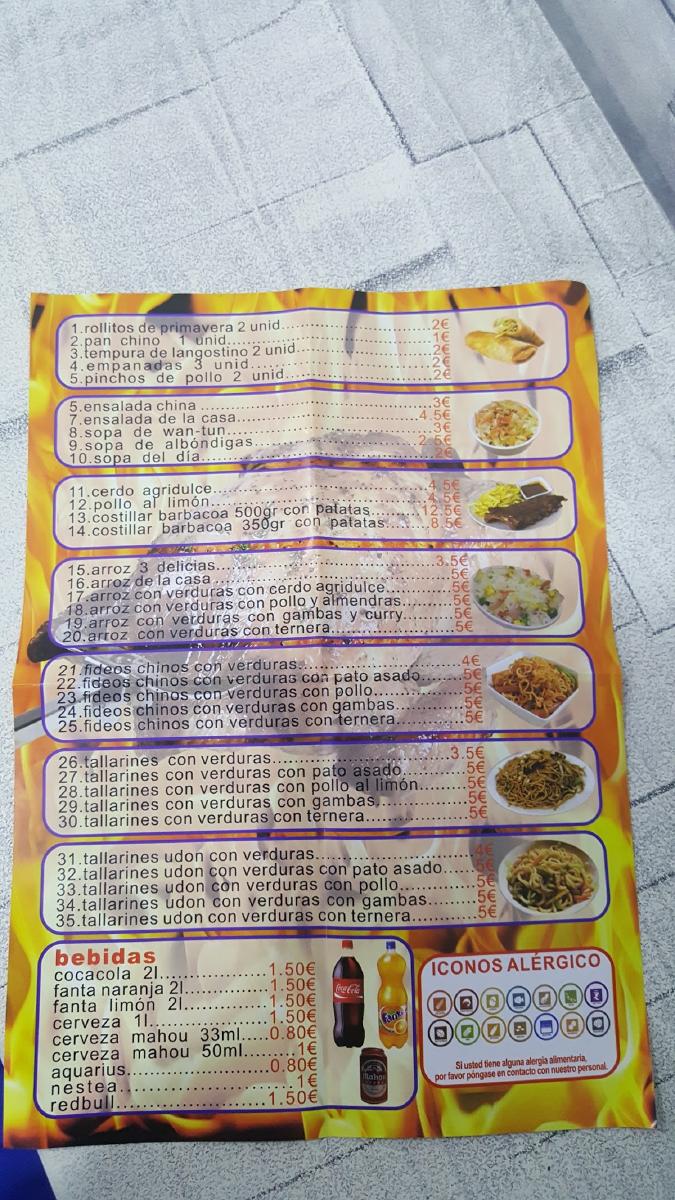 1.rollitos de primavera 2 unid..............................2€
2.pan chino 1 unid..............................1€
3.tempura de langostino 2 unid..............................2€
4.empanadas 3 unid..............................2€
5.pinchos de pollo 2 unid..............................2€
5.ensalada china..............................3€
7.ensalada de la casa..............................4.5€
8.sopa de wan-tun..............................3€
9.sopa de albóndigas..............................2.5€
10.sopa del día..............................2€
11.cerdo agridulce..............................4.5€
12.pollo al limón..............................4.5€
13.costillar barbacoa 500gr con patatas........12.5€
14.costillar barbacoa 350gr con patatas........8.5€
15.arroz 3 delicias..............................3.5€
16.arroz de la casa..............................5€
17.arroz con verduras con cerdo agridulce..........5€
18.arroz con verduras con pollo y almendras........5€
19.arroz con verduras con gambas y curry........5€
20.arroz con verduras con ternera..................5€
21.fideos chinos con verduras....................4€
22.fideos chinos con verduras con pato asado.......5€
23.fideos chinos con verduras con pollo............5€
24.fideos chinos con verduras con gambas...........5€
25.fideos chinos con verduras con ternera..........5€
26.tallarines con verduras.........................3.5€
27.tallarines con verduras con pato asado..........5€
28.tallarines con verduras con pollo al limón......5€
29.tallarines con verduras con gambas..............5€
30.tallarines con verduras con ternera.............5€
31.tallarines udon con verduras....................4€
32.tallarines udon con verduras con pato asado.....5€
33.tallarines udon con verduras con pollo..........5€
34.tallarines udon con verduras con gambas.........5€
35.tallarines udon con verduras con ternera........5€
bebidas
cocacola 2l..............1.50€
fanta naranja 2l...........1.50€
fanta limón 2l...........1.50€
cerveza 1l..............1.50€
cerveza mahou 33ml.....0.80€
cerveza mahou 50ml.......1€
aquarius..................0.80€
nestea......................1€
redbull...................1.50€
Coca-Cola
Fanta
Mahou
ICONOS ALÉRGICO
Si usted tiene alguna alergia alimentaria,
por favor póngase en contacto con nuestro personal.